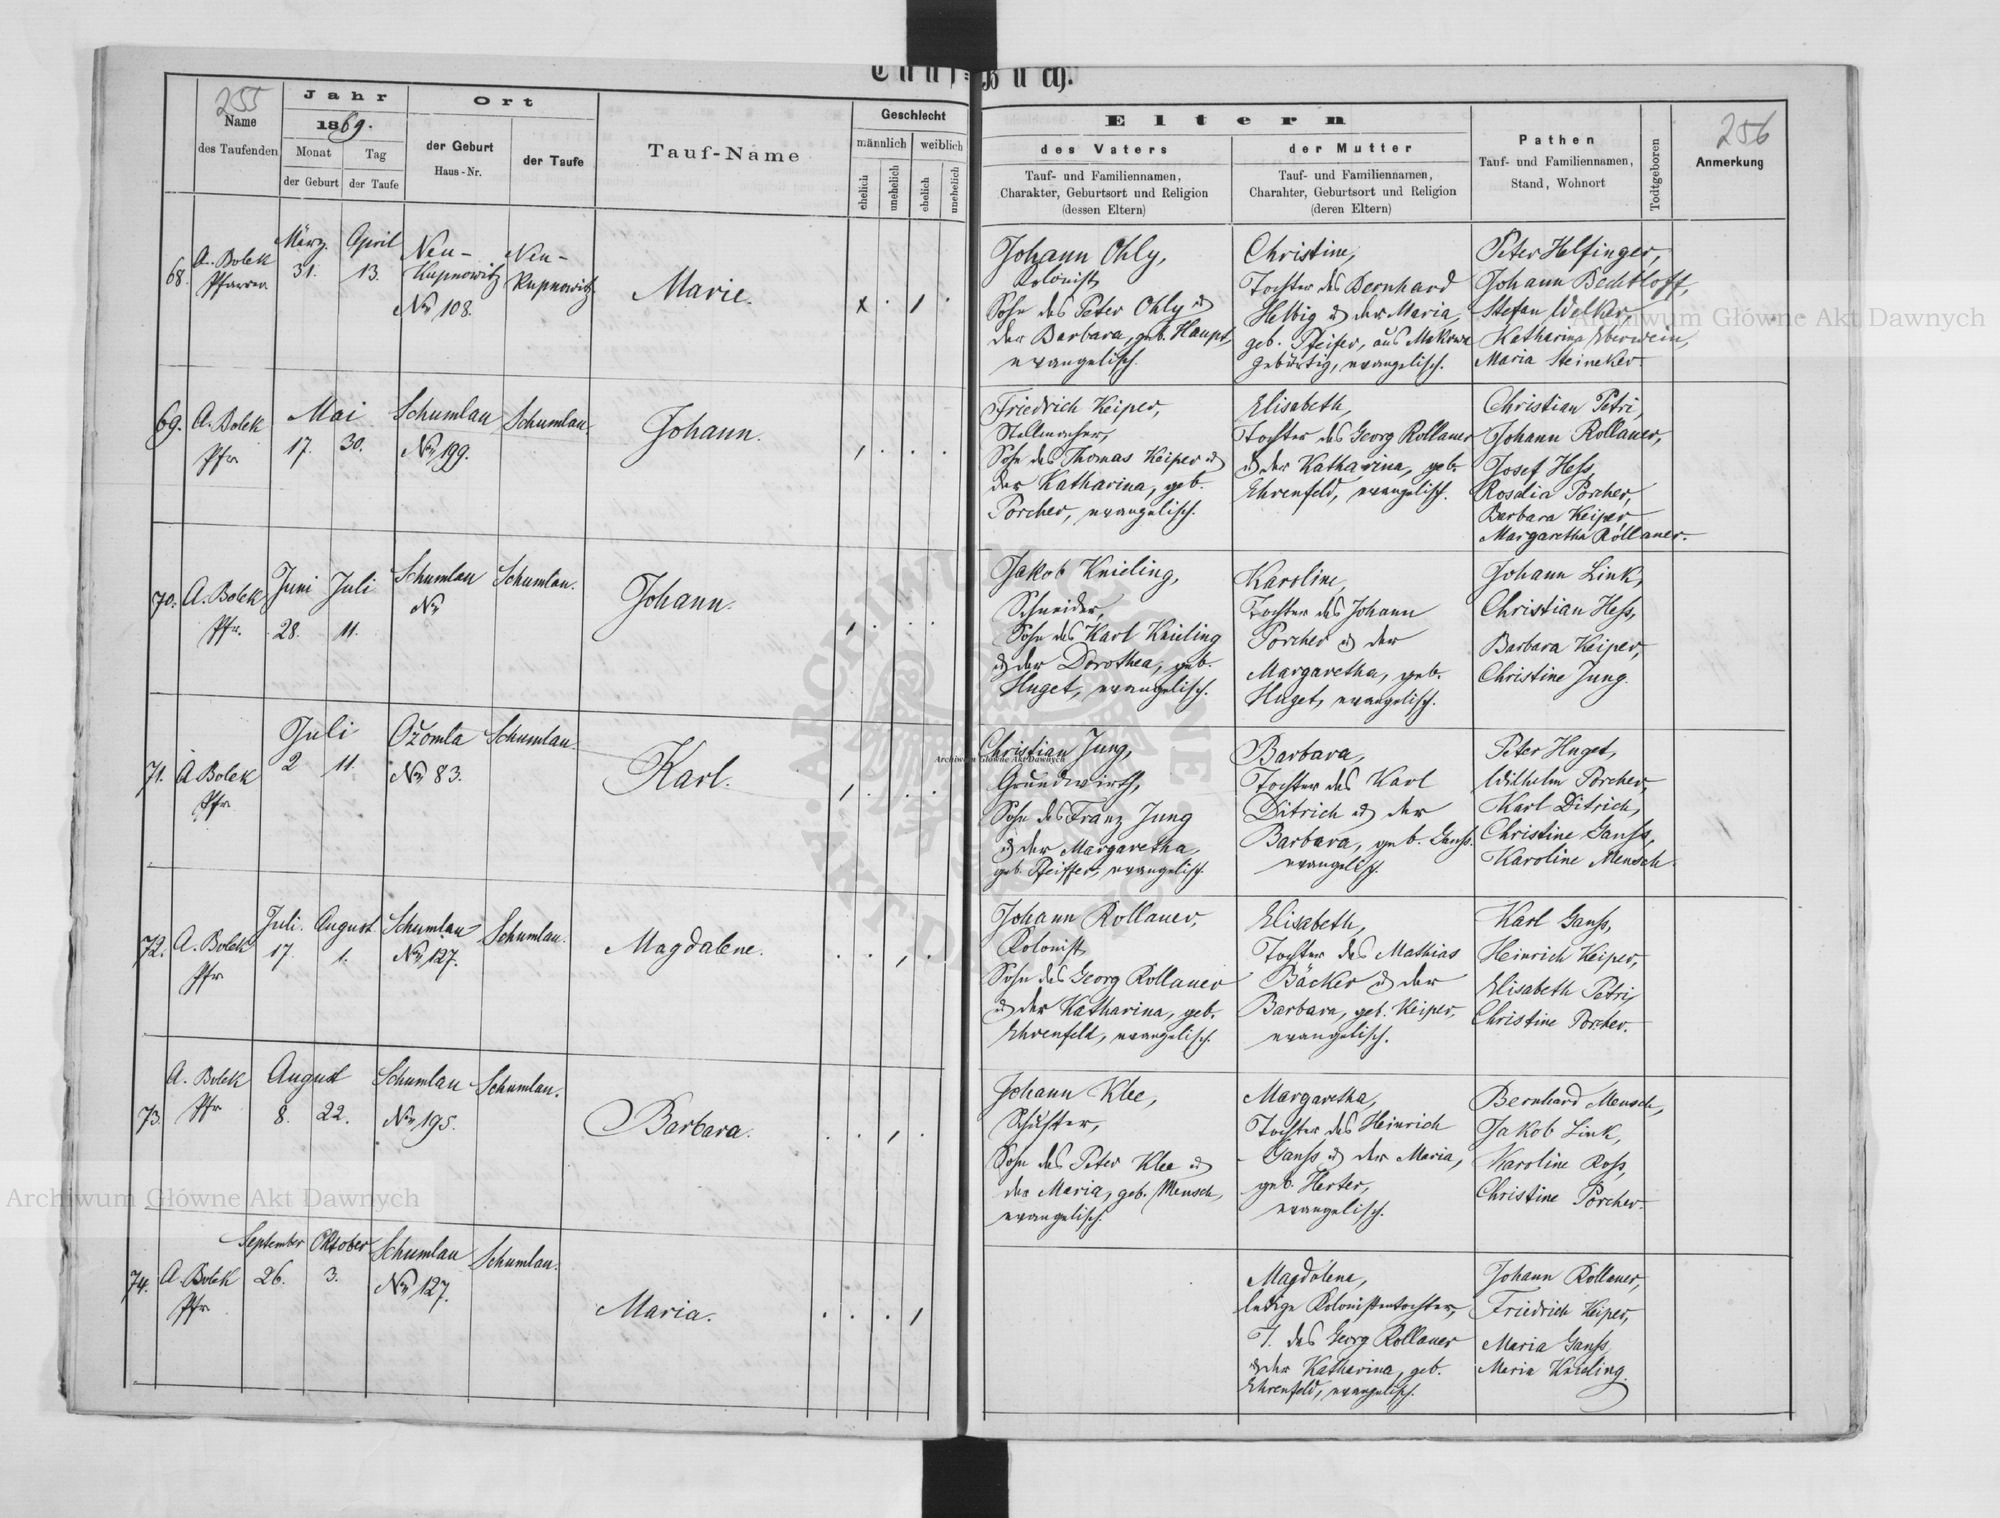 Tauf-Buch.
255
Name
des Taufenden
Jahr
1869.
Monat
der Geburt
Tag
der Taufe
Ort
der Geburt
Haus-Nr.
der Taufe
Tauf-Name
Geschlecht
männlich
weiblich
ehelich
unehelich
ehelich
unehelich
Eltern
des Vaters
Tauf- und Familiennamen,
Charakter, Geburtsort und Religion
(dessen Eltern)
der Mutter
Tauf- und Familiennamen,
Charahter, Geburtsort und Religion
(deren Eltern)
Pathen
Tauf- und Familiennamen,
Stand, Wohnort
Todtgeboren
256
Anmerkung
68.
A. Bolek
Pfarrer
März
31.
April
13.
Neu-
Kupnowitz
No 108.
Neu-
Kupnowitz
Marie.
Johann Ohly,
Kolonist,
Sohn des Peter Ohly u.
der Barbara, geb. Haupt,
evangelisch.
Christine,
Tochter des Bernhard
Helbig u. der Maria,
geb. Pfeifer, aus Makowa
gebürtig, evangelisch.
Peter Helfinger,
Johann Bechtloff,
Stefan Welker,
Katharina Eberwein,
Maria Steineker.
69.
A. Bolek
Pfr
Mai
17. 30.
Schumlau
No 199.
Schumlau.
Johann.
Friedrich Keiper,
Stellmacher,
Sohn des Thomas Keiper u.
der Katharina, geb.
Porcher, evangelisch.
Elisabeth,
Tochter des Georg Rollauer
u. der Katharina, geb.
Ehrenfeld, evangelisch.
Christian Petri,
Johann Rollauer,
Josef Heß,
Rosalia Porcher,
Barbara Keiper,
Margaretha Rollauer.
70.
A. Bolek
Pfr.
Juni
28.
Juli
11.
Schumlau
No
Schumlau.
Johann.
Jakob Knieling,
Schneider,
Sohn des Karl Knieling
u. der Dorothea, geb.
Huget, evangelisch.
Karoline,
Tochter des Johann
Porcher u. der
Margaretha, geb.
Huget, evangelisch.
Johann Link,
Christian Heß,
Barbara Keiper,
Christine Jung.
71.
A. Bolek
Pfr
Juli
2 11.
Ožomla
No 83.
Schumlau.
Karl.
Christian Jung,
Grundwirth,
Sohn des Franz Jung
u. der Margaretha,
geb. Pfeiffer, evangelisch.
Barbara,
Tochter des Karl
Ditrich u. der
Barbara, geb. Ganß.
evangelisch.
Peter Huget,
Wilhelm Porcher,
Karl Ditrich,
Christine Ganß,
Karoline Mensch.
72.
A. Bolek
Pfr
Juli.
17.
August
1.
Schumlau
No 127.
Schumlau.
Magdalene.
Johann Rollauer,
Kolonist,
Sohn des Georg Rollauer
u. der Katharina, geb.
Ehrenfeld, evangelisch.
Elisabeth,
Tochter des Mathias
Bäcker u. der
Barbara, geb. Keiper,
evangelisch.
Karl Ganß,
Heinrich Keiper,
Elisabeth Petri,
Christine Porcher.
73.
A. Bolek
Pfr
August
8. 22.
Schumlau
No 195.
Schumlau.
Barbara.
Johann Klee,
Schuster,
Sohn des Peter Klee u.
der Maria, geb. Mensch,
evangelisch.
Margaretha,
Tochter des Heinrich
Ganß u. der Maria,
geb. Herter,
evangelisch.
Bernhard Mensch,
Jakob Link,
Karoline Roß,
Christine Porcher.
74.
A. Bolek
Pfr
September
26.
Oktober
3.
Schumlau
No 127.
Schumlau.
Maria.
Magdalena,
ledige Kolonistentochter,
T. des Georg Rollauer
u. der Katharina, geb.
Ehrenfeld, evangelisch.
Johann Rollauer,
Friedrich Keiper,
Maria Ganß,
Maria Knieling.
Archiwum Główne Akt Dawnych
Archiwum Główne Akt Dawnych
Archiwum Główne Akt Dawnych